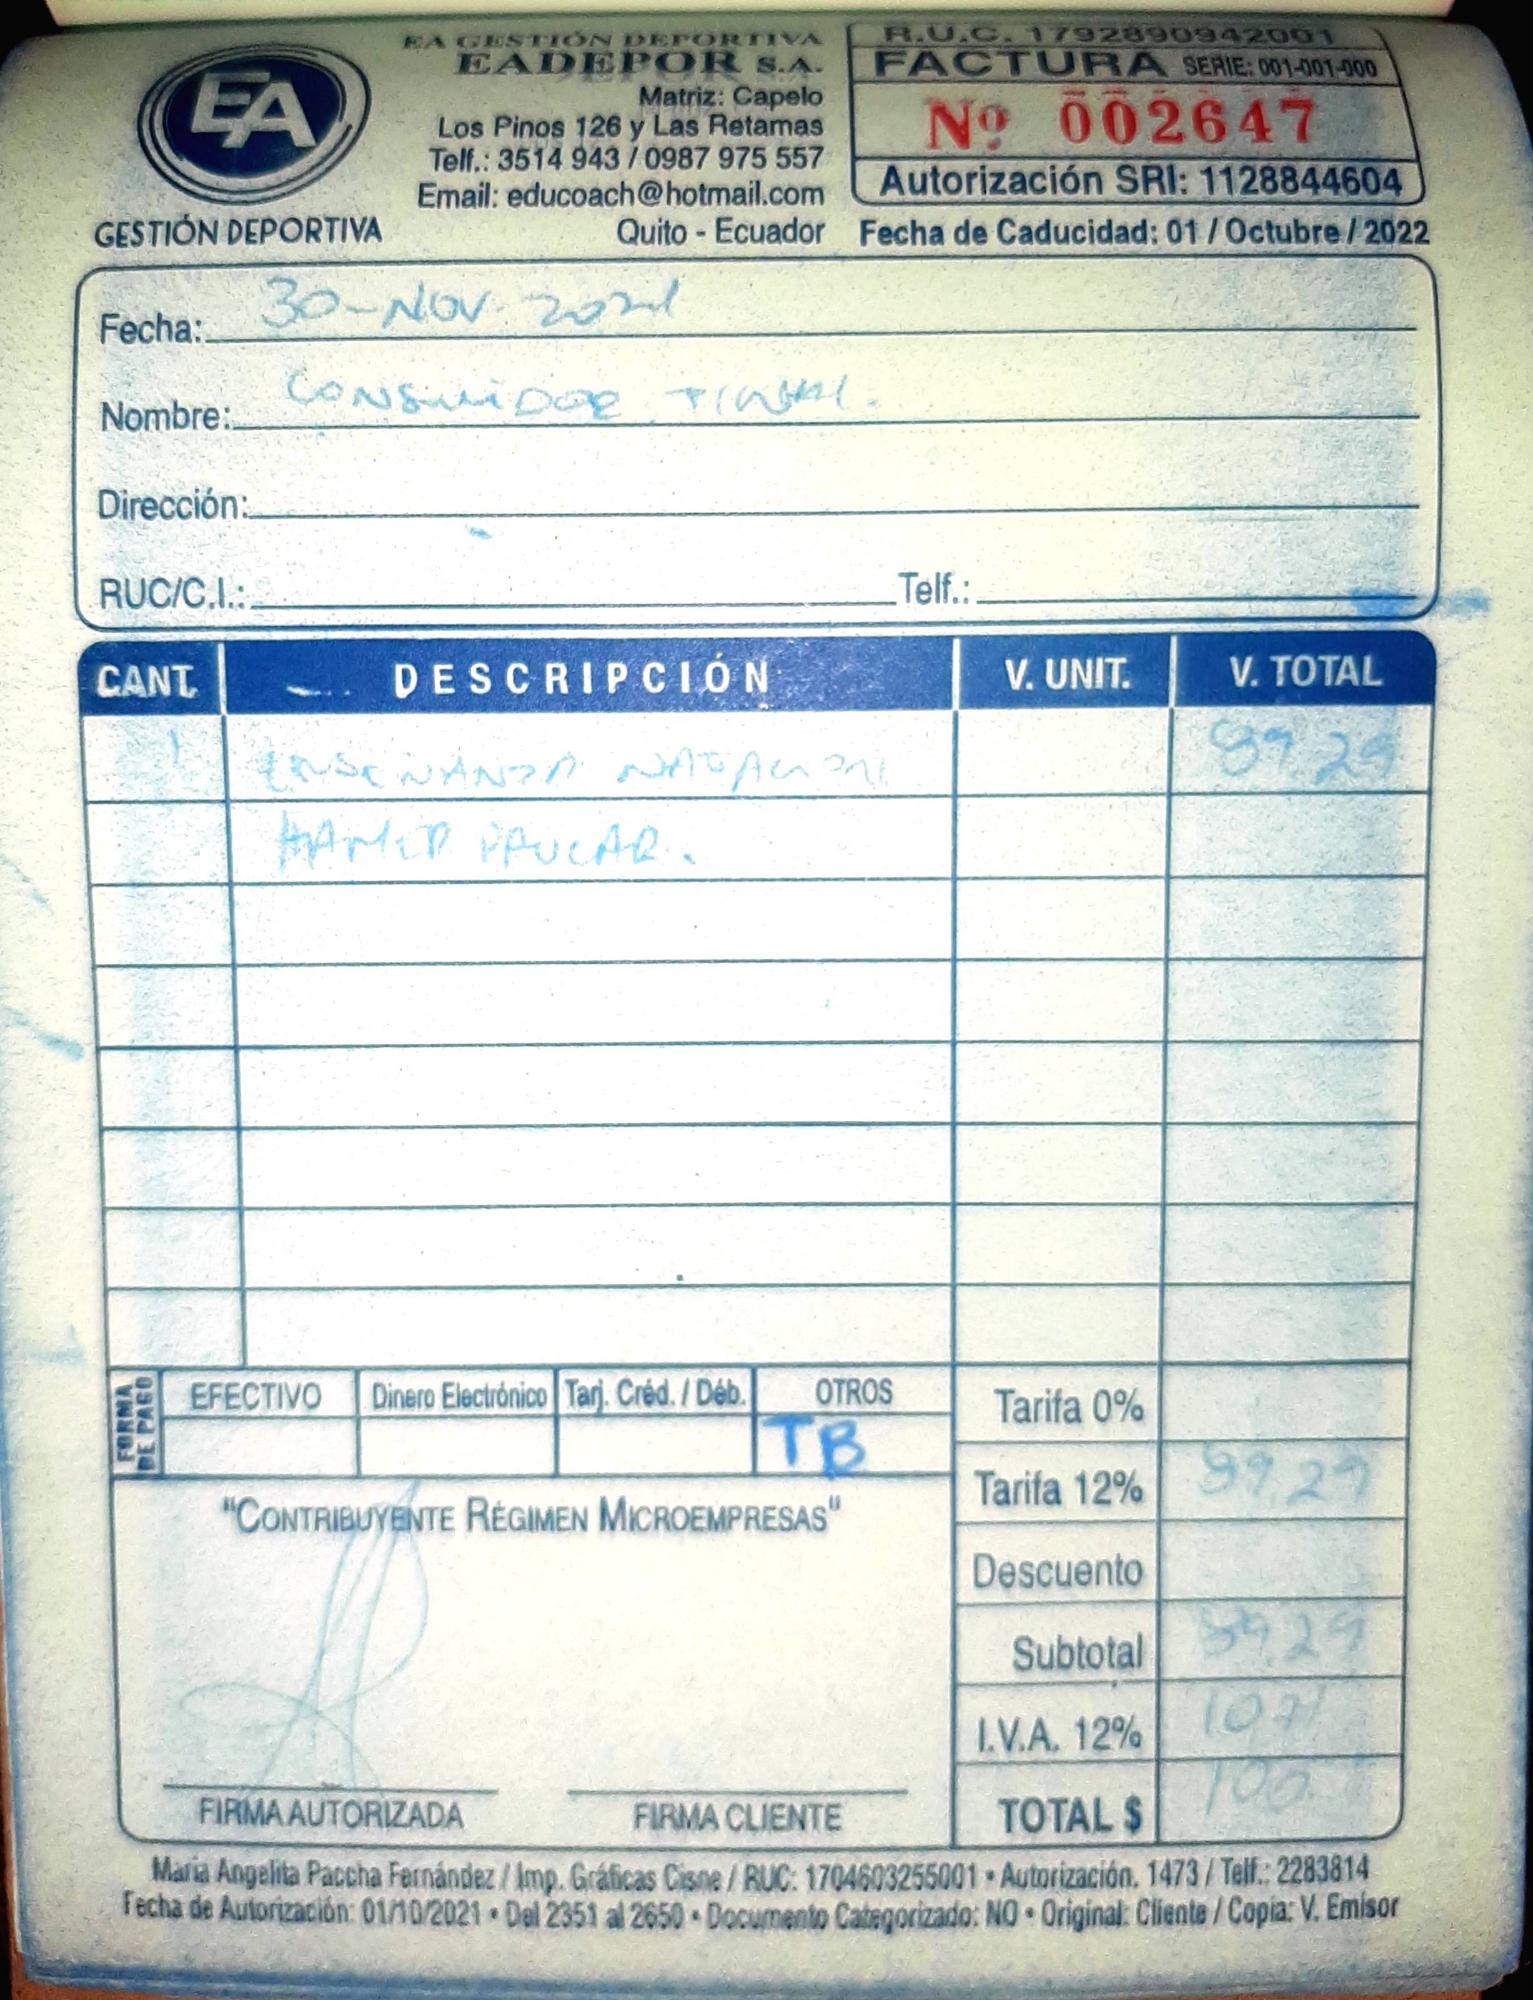 EA
GESTIÓN DEPORTIVA
EA GESTIÓN DEPORTIVA
EADEPOR S.A.
Matriz: Capelo
Los Pinos 126 y Las Retamas
Telf.: 3514 943 / 0987 975 557
Email: educoach@hotmail.com
Quito - Ecuador
R.U.C. 1792890942001
FACTURA SERIE: 001-001-000
Nº 002647
Autorización SRI: 1128844604
Fecha de Caducidad: 01 / Octubre / 2022
Fecha: 30-NOV. 2021
Nombre: CONSUMIDOR FINAL.
Dirección:
RUC/C.I.: Telf.:
CANT. DESCRIPCIÓN V. UNIT. V. TOTAL
1 ENSEÑANZA NATACION 89.29
PAUCAR.
FORMA DE PAGO
EFECTIVO Dinero Electrónico Tarj. Créd. / Déb. OTROS
TB
Tarifa 0%
Tarifa 12% 89.29
Descuento
Subtotal 89.29
I.V.A. 12% 10.71
TOTAL $ 100.
"CONTRIBUYENTE RÉGIMEN MICROEMPRESAS"
FIRMA AUTORIZADA FIRMA CLIENTE
Maria Angelita Paccha Fernández / Imp. Gráficas Cisne / RUC: 1704603255001 • Autorización. 1473 / Telf.: 2283814
Fecha de Autorización: 01/10/2021 • Del 2351 al 2650 • Documento Categorizado: NO • Original: Cliente / Copia: V. Emisor